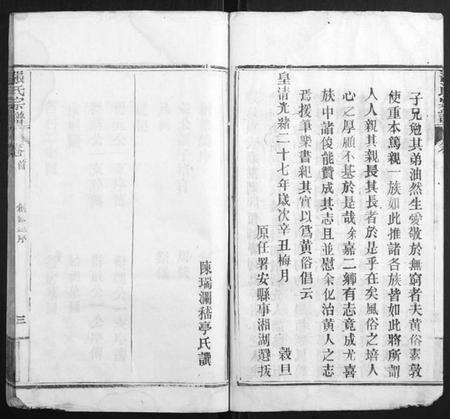 子兄勉其弟油然生愛敬於無窮者夫黃俗素敦
使重本篤親一族如此推諸各族皆如此將所謂
人人親其親長其長者於是乎在矣風俗之培人
心之厚顧不基於是哉余嘉二鄉有志竟成尤喜
族中諸俊能贊成其志且並慰余化治黃人之志
焉援筆樂書紀其實以為黃俗倡云
皇清光緒二十七年歲次辛丑梅月 穀旦
原任署安縣事湘湖選拔
陳瑞瀾嵇亭氏譔
張氏宗譜
卷首
序
三